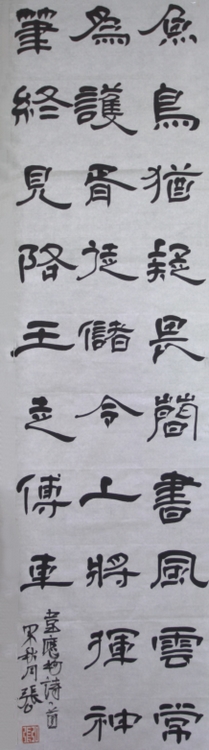 魚鳥猶疑畏簡書風雲常
為護胥徒儲令上將揮神
筆終見降王走傳車
應物詩一首
秋月張